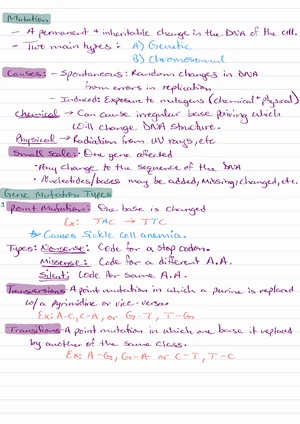 Mutation
- A permanent + inheritable change in the DNA of the cell.
- Two main types: A) Genetic
B) Chromosomal
Causes: - Spontaneous: Random changes in DNA
from errors in replication
- Induced: Exposure to mutagens (chemical + physical)
Chemical → Can cause irregular base pairing which
will change DNA structure.
Physical → Radiation from UV rays, etc
Small Scale: One gene affected
• Any change to the sequence of the DNA
• Nucleotides/bases may be added, missing, changed, etc.
Gene Mutation Types
1 Point Mutation: One base is changed
Ex: TAC → TTC
Causes Sickle Cell anemia.
Types: Nonsense: Code for a stop codon.
Missense: Code for a different A.A.
Silent: Code for same A.A.
Transversions: A point mutation in which a purine is replaced
w/ a pyrimidine or vice-versa.
Ex: A-C, C-A, or G-T, T-G
Transitions: A point mutation in which one base it replaced
by another of the same class.
Ex: A-G, G-A or C-T, T-C